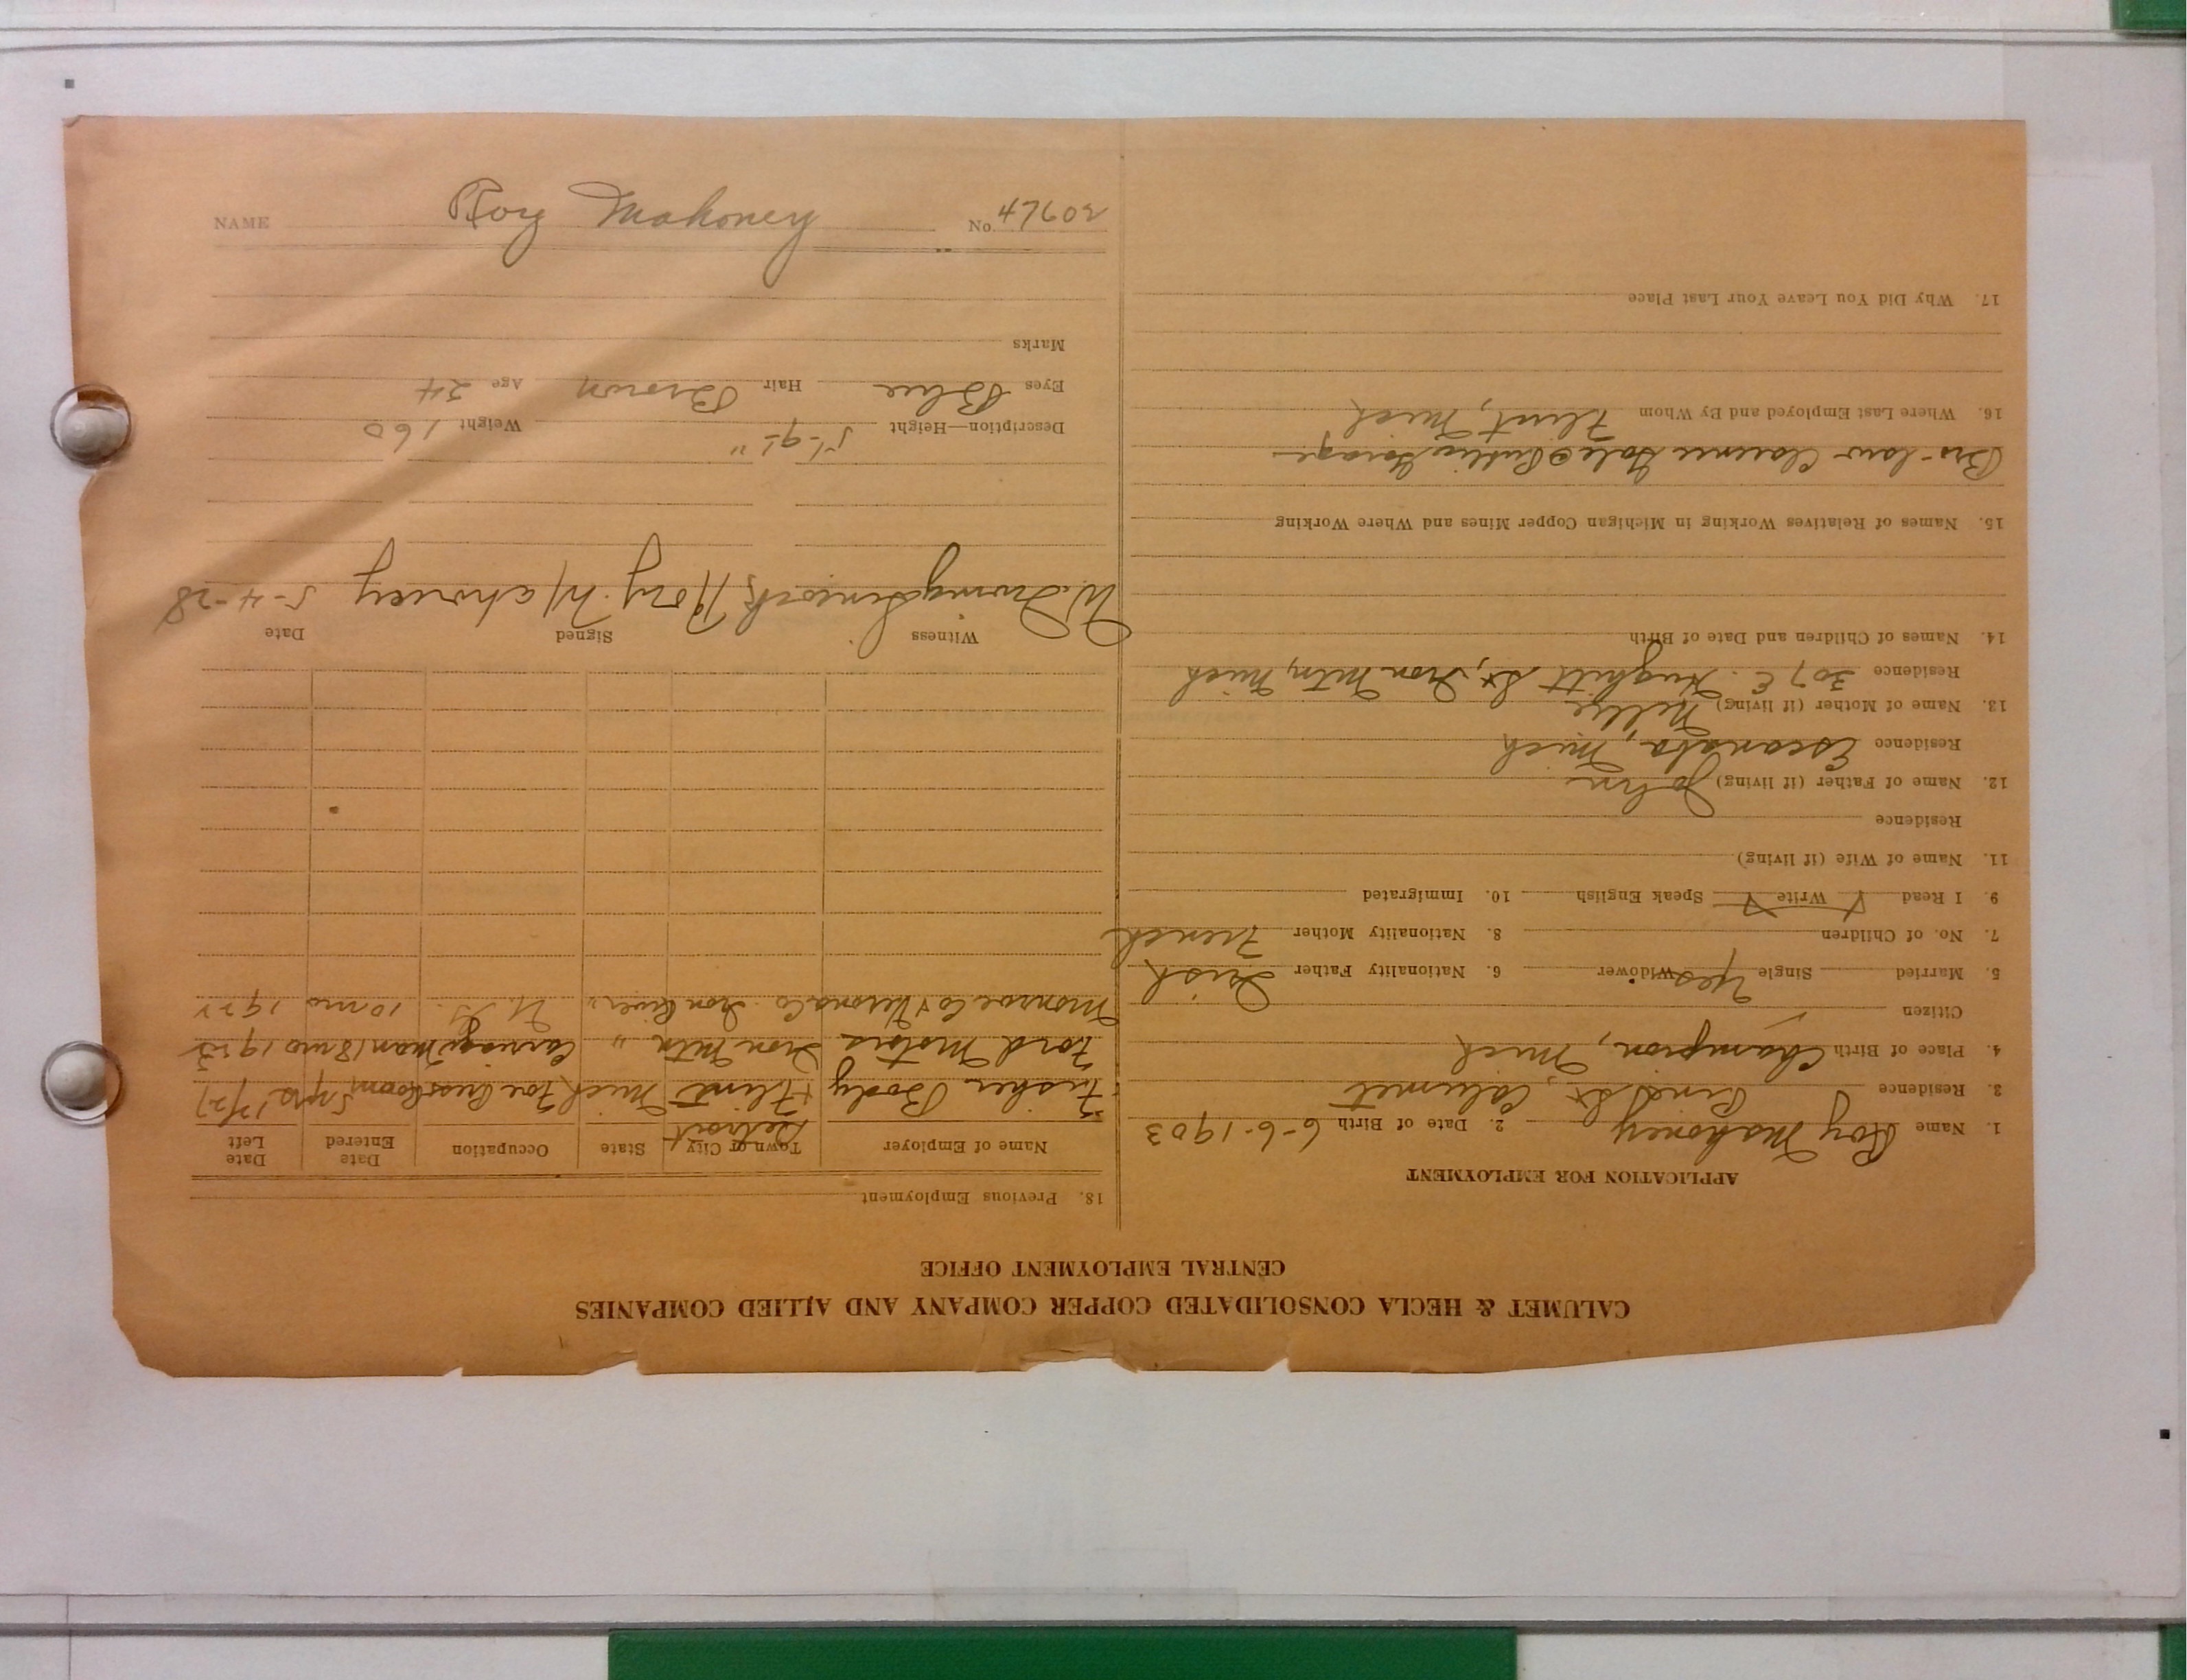 CALUMET & HECLA CONSOLIDATED COPPER COMPANY AND ALLIED COMPANIES
CENTRAL EMPLOYMENT OFFICE
APPLICATION FOR EMPLOYMENT
1. Name Roy Mahoney 2. Date of Birth 6-6-1903
3. Residence Pine St, Calumet
4. Place of Birth Champion, Mich
Citizen
5. Married Single Yes Widower 6. Nationality Father Irish
7. No. of Children 8. Nationality Mother French
9. I Read Write Speak English 10. Immigrated
11. Name of Wife (if living)
Residence
12. Name of Father (if living) John
Residence Escanaba, Mich
13. Name of Mother (if living) Nellie
Residence 307 E. Hughitt St, Iron Mtn, Mich
14. Names of Children and Date of Birth
15. Names of Relatives Working in Michigan Copper Mines and Where Working
Bro-law Clarence Gale @ Public Garage
16. Where Last Employed and By Whom Flint, Mich
17. Why Did You Leave Your Last Place
18. Previous Employment
Name of Employer Town or City State Occupation Date Entered Date Left
Detroit
Fisher Body + Flint Mich For Room 5 yrs 12/27
Ford Motors Iron Mtn " man 18 mo 1923
Monroe Co + Verona Co. Iron River 10 mo 1922
Witness Signed Date
W. Irving Roy Mahoney 5-4-28
Description—Height 5'-9½" Weight 160
Eyes Blue Hair Brown Age 24
Marks
NAME Roy Mahoney No. 47602